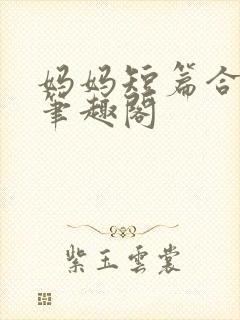 妈妈短篇合
笔趣阁
紫玉云裳